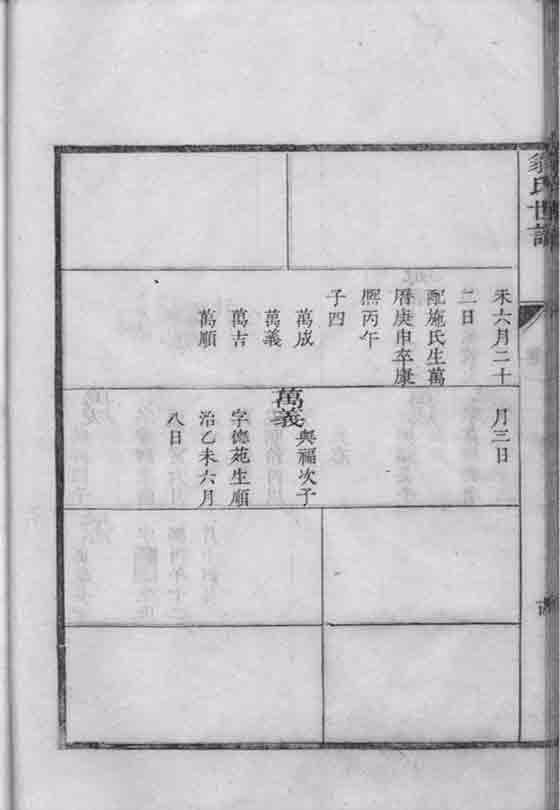 氏世譜
未六月二十
二日
配施氏生萬
曆庚申卒康
熈丙午
子四
萬成
萬義
萬吉
萬順
月三日
萬義
與福次子
字德苑生順
治乙未六月
八日